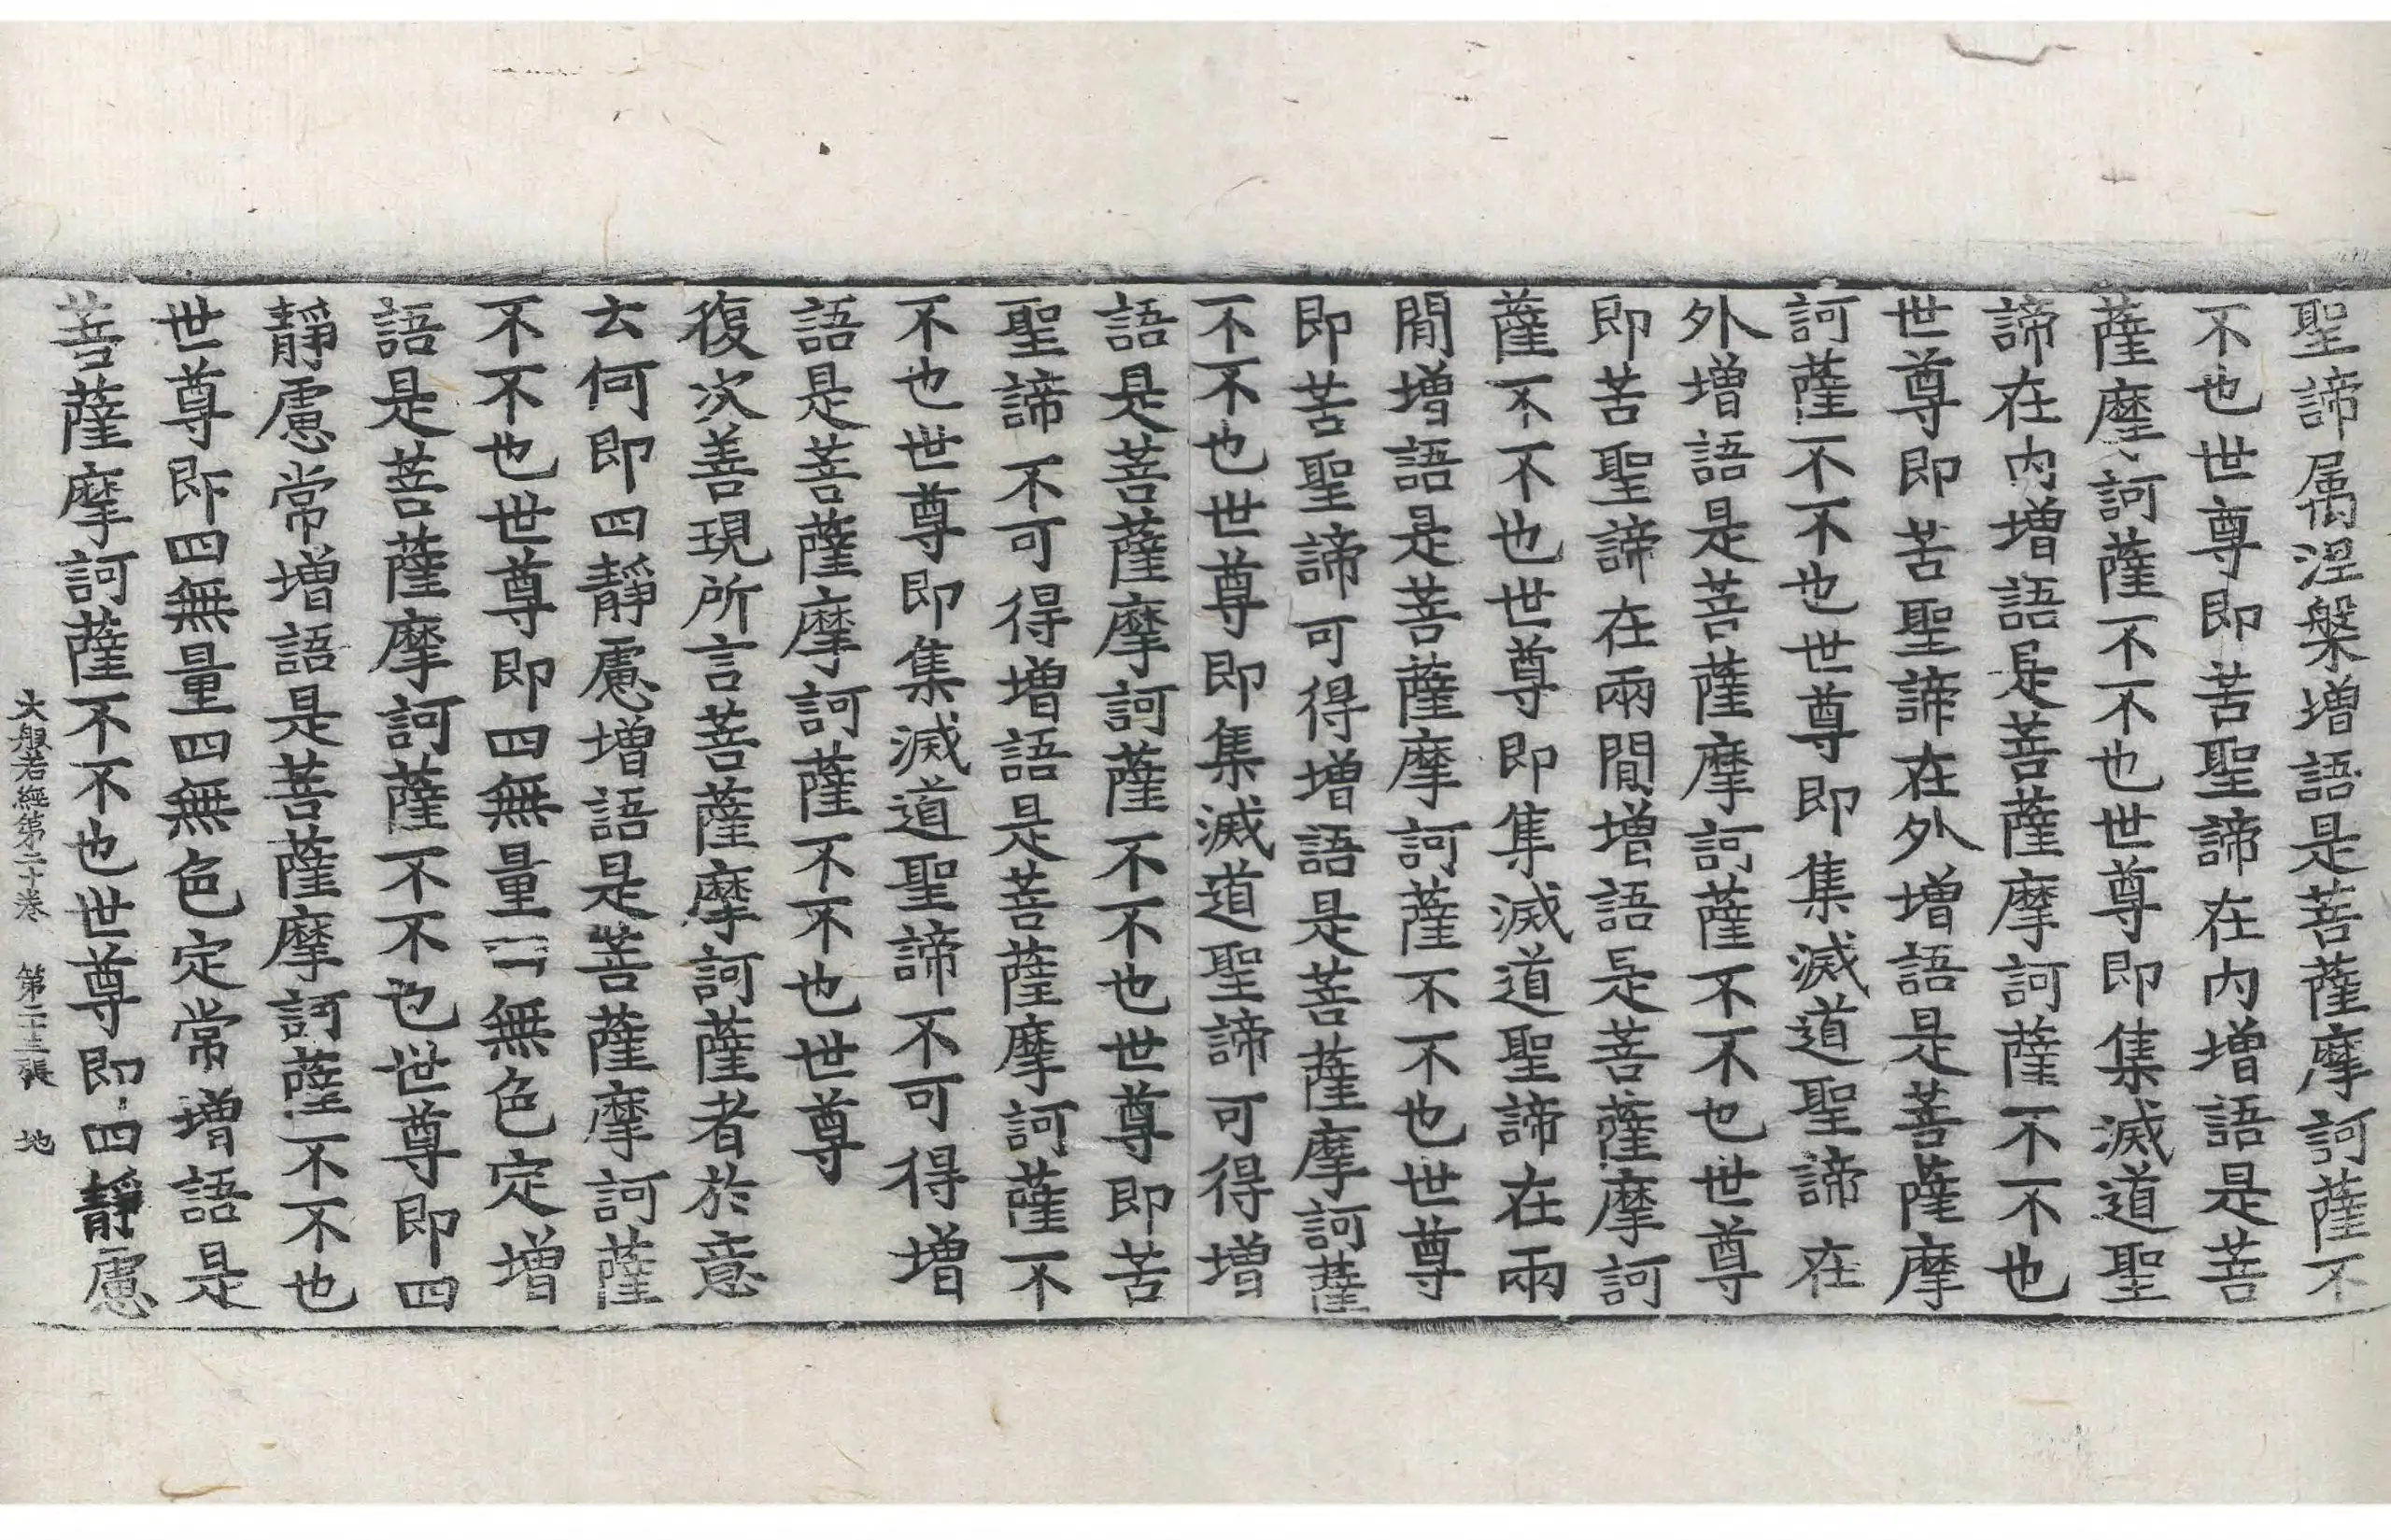 聖諦屬涅槃增語是菩薩摩訶薩不
不也世尊即苦聖諦在內增語是菩
薩摩訶薩不不也世尊即集滅道聖
諦在內增語是菩薩摩訶薩不不也
世尊即苦聖諦在外增語是菩薩摩
訶薩不不也世尊即集滅道聖諦在
外增語是菩薩摩訶薩不不也世尊
即苦聖諦在兩閒增語是菩薩摩訶
薩不不也世尊即集滅道聖諦在兩
閒增語是菩薩摩訶薩不不也世尊
即苦聖諦可得增語是菩薩摩訶薩
不不也世尊即集滅道聖諦可得增
語是菩薩摩訶薩不不也世尊即苦
聖諦不可得增語是菩薩摩訶薩不
不也世尊即集滅道聖諦不可得增
語是菩薩摩訶薩不不也世尊
復次善現所言菩薩摩訶薩者於意
云何即四靜慮增語是菩薩摩訶薩
不不也世尊即四無量四無色定增
語是菩薩摩訶薩不不也世尊即四
靜慮常增語是菩薩摩訶薩不不也
世尊即四無量四無色定常增語是
菩薩摩訶薩不不也世尊即四靜慮
大般若經第二十卷 第二十三張 地